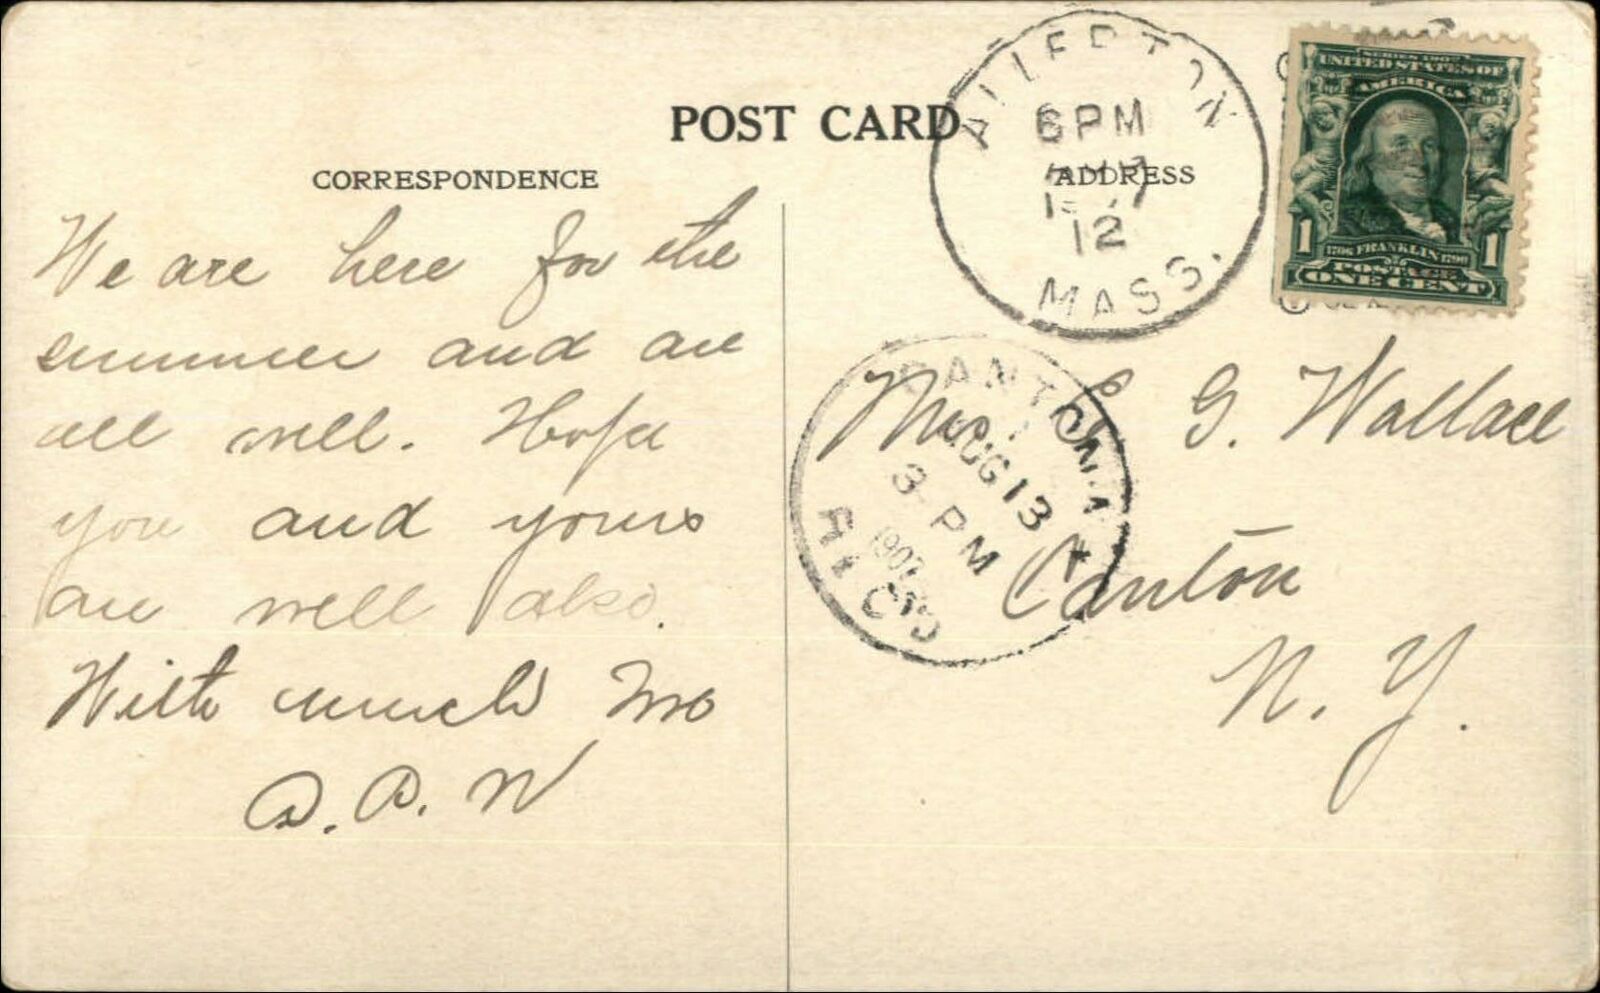 POST CARD
CORRESPONDENCE
ADDRESS
We are here for the
summer and are
all well. Hope
you and yours
are well also.
With much
ALLERTON
6 PM
12
MASS.
SERIES 1902
UNITED STATES OF
AMERICA
1 1
1706 FRANKLIN 1790
POSTAGE
ONE CENT
CANTON, N.Y.
AUG 13
3 - PM
1907
REC'D
G. Wallace
Canton
N. Y.